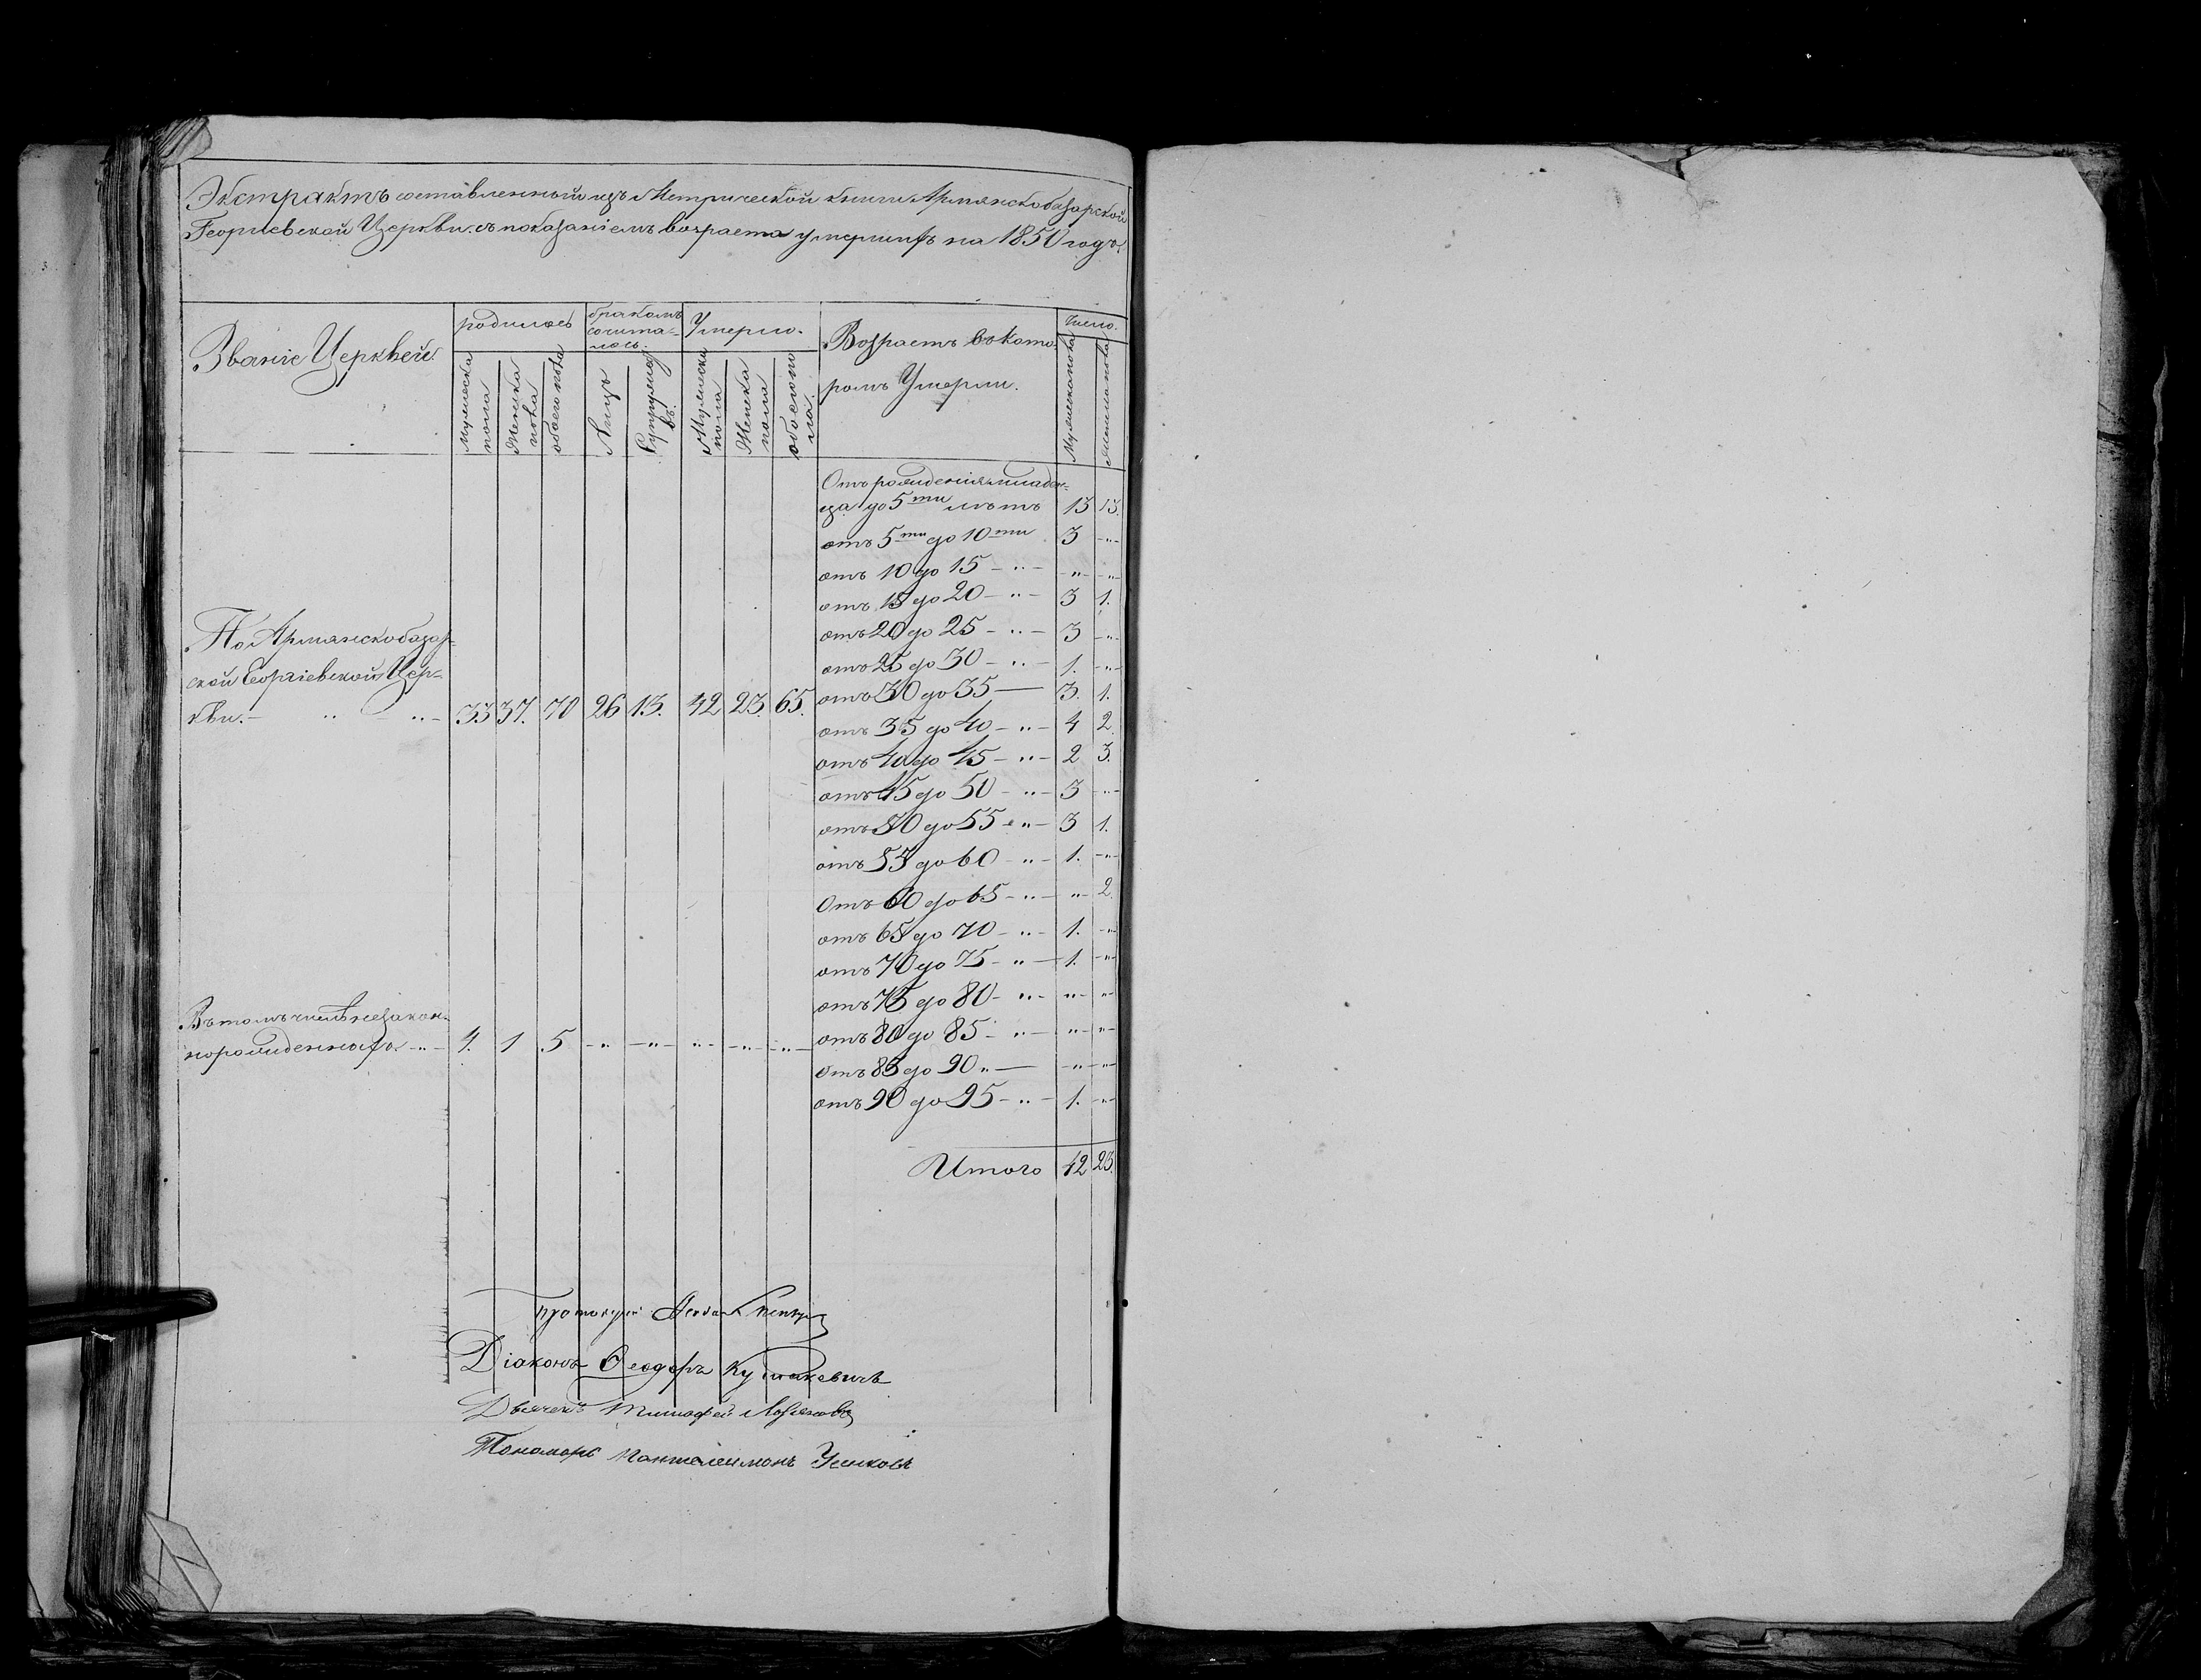 Экстрактъ составленный изъ Метрической книги Армянскобазарской
Георгіевской Церкви. съ показаніемъ возраста умершихъ на 1850 годъ.
Званіе Церквей
родилось
бракомъ
сочита-
лось.
Умерло.
Возрастъ въ кото-
ромъ Умерли.
Число.
Мужеска
пола
Женска
пола
обоего пола
Лицъ
Супружес
въ.
Мужеска
пола
Женска
пола
обоего по
ла.
Мужеска пола
Женска пола
Отъ рожденія младен-
ца до 5ти лѣтъ 13 13.
отъ 5ти до 10ти 3 -"-
отъ 10 до 15 - " - -"- -"-
отъ 15 до 20 - " - 3 1.
отъ 20 до 25 - " - 3 -"-
отъ 25 до 30 - " - 1. -"-
отъ 30 до 35 — 3. 1.
отъ 35 до 40 - " - 4 2.
отъ 40 до 45 - " - 2 3.
отъ 45 до 50 - " - 3 -"-
отъ 50 до 55 - " - 3 1.
отъ 55 до 60 - " - 1. -"-
Отъ 60 до 65 - " - " - 2.
отъ 65 до 70 - " - 1. -"-
отъ 70 до 75 - " - 1. -"-
отъ 75 до 80 - " - "- -"-
отъ 80 до 85 - " - "- -"-
отъ 85 до 90 " — -"- -"-
отъ 90 до 95 - " - 1. -"-
Итого 42 23.
По Армянскобазар-
ской Георгіевской Цер-
кви. - " " - 33 37. 70 26 13. 42 23. 65.
Въ томъ числѣ незакон-
норожденныхъ. - " - 4. 1 5 - " - " - " - " - " -
Протоіерей
Діаконъ Феодоръ Кушакевичъ
Дьячекъ Тимофей
Пономорь Пантелеимонъ Усиковъ